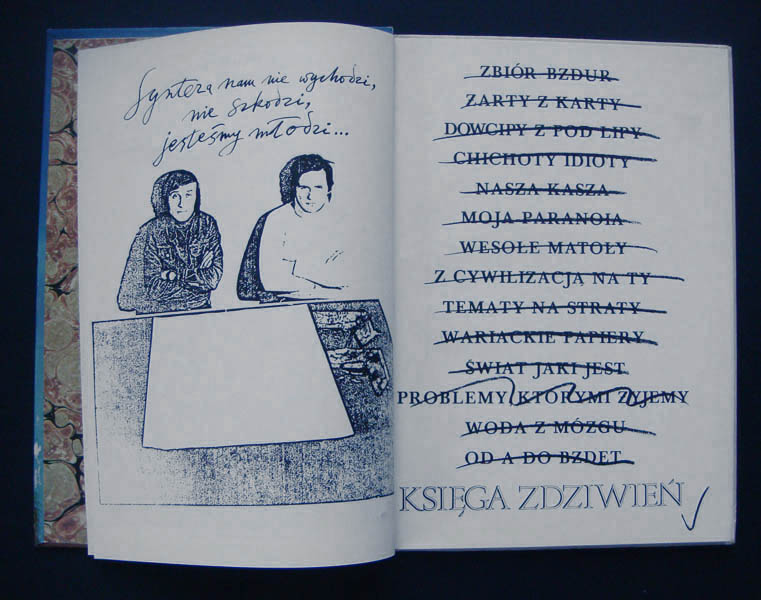 Syntera nam nie wychodzi,
nie szkodzi,
jesteśmy młodzi...
ZBIÓR BZDUR
ŻARTY Z KARTY
DOWCIPY Z POD LIPY
CHICHOTY IDIOTY
NASZA KASZA
MOJA PARANOIA
WESOŁE MATOŁY
Z CYWILIZACJĄ NA TY
TEMATY NA STRATY
WARIACKIE PAPIERY
ŚWIAT JAKI JEST
PROBLEMY KTÓRYMI ŻYJEMY
WODA Z MÓZGU
OD A DO BZDET
KSIĘGA ZDZIWIEŃ